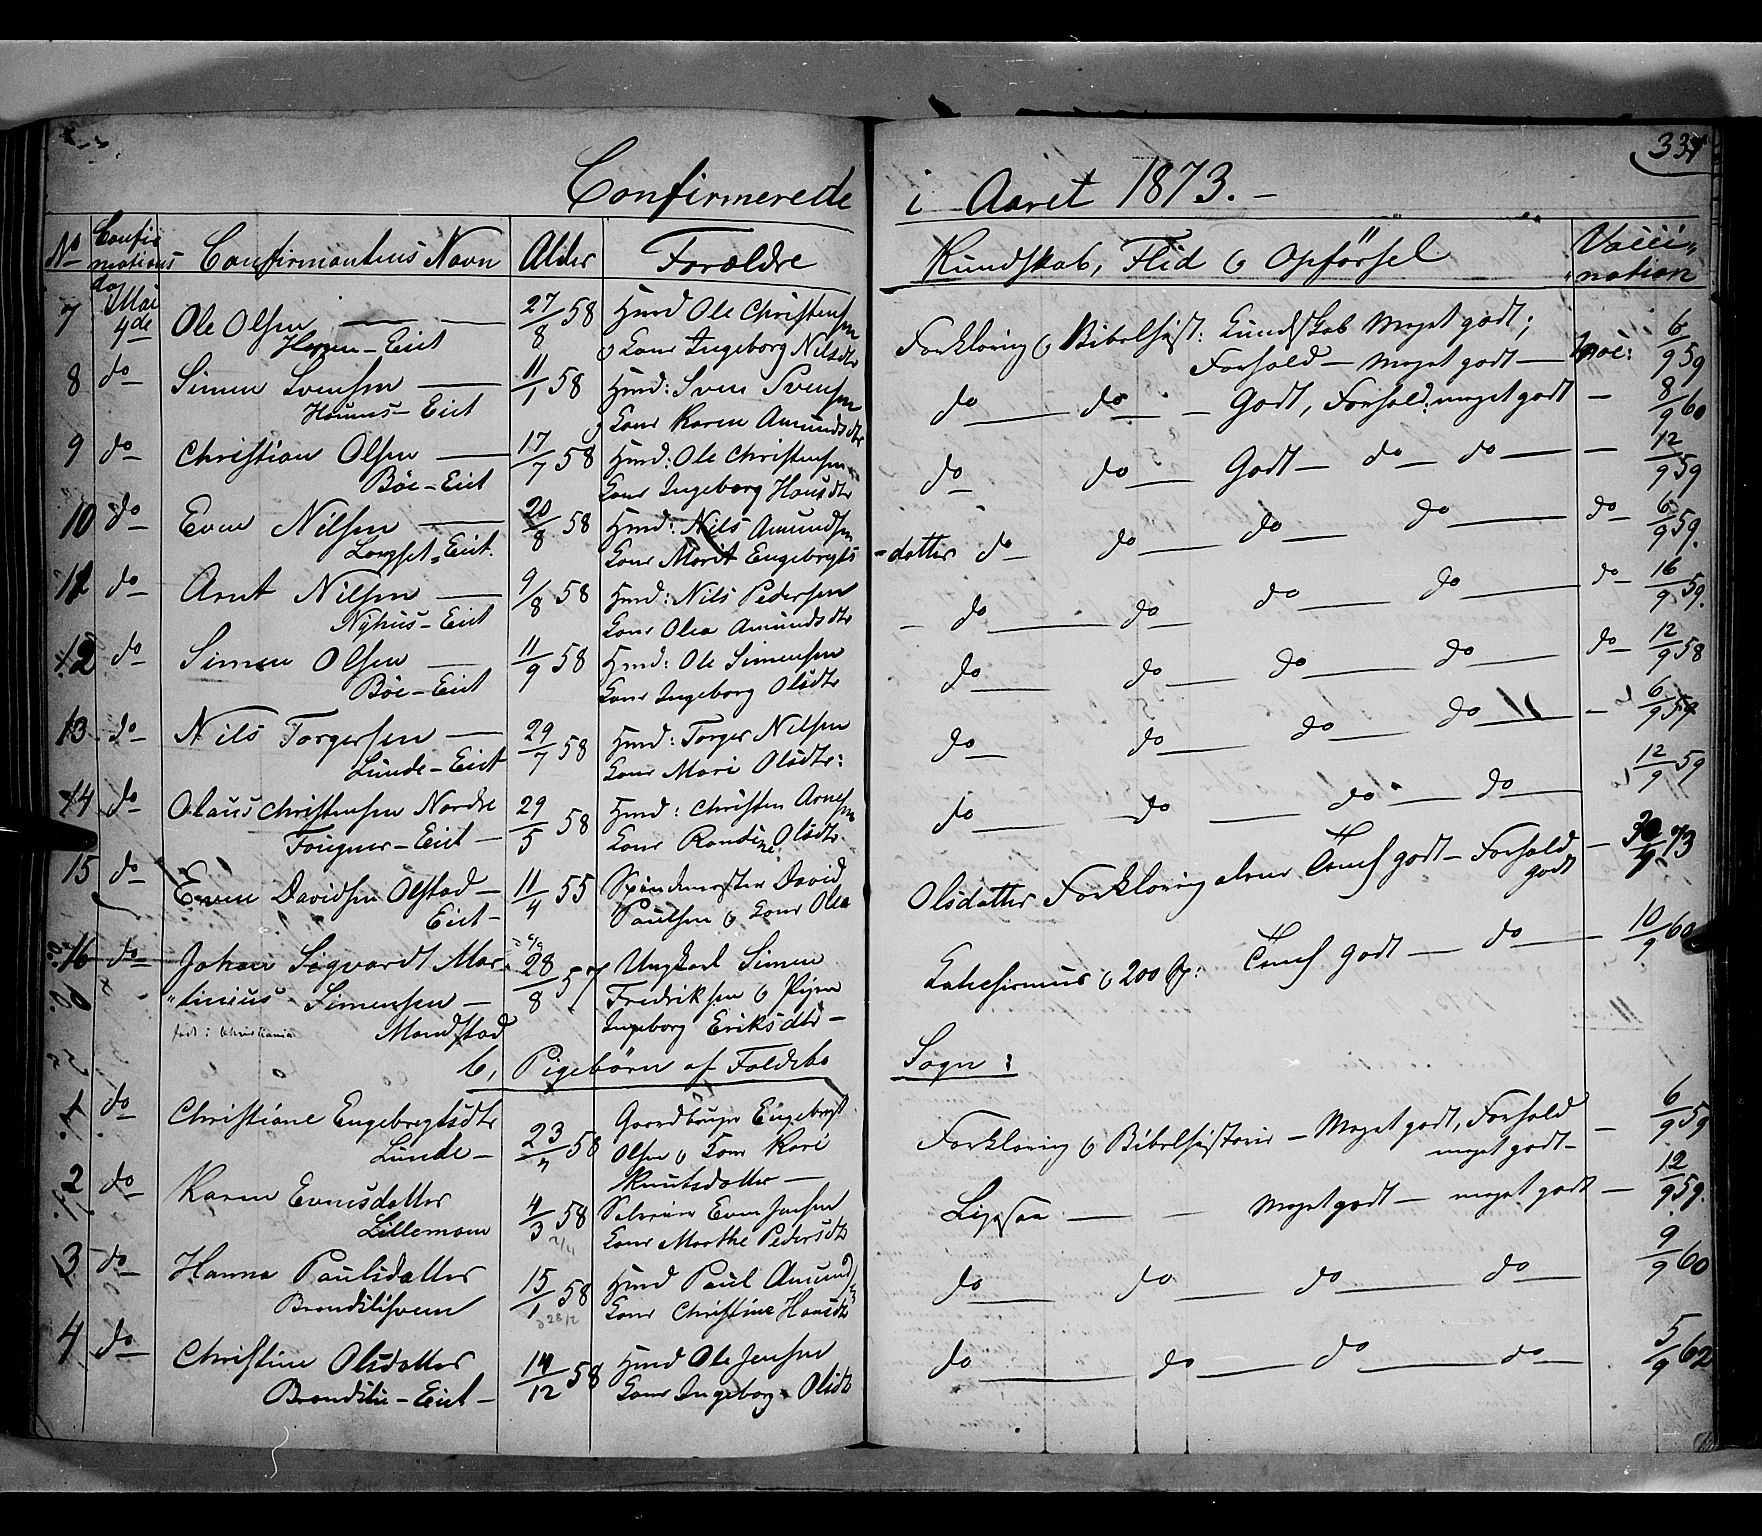 331
Confirmerede i Aaret 1873.
No Confirmations Confirmantens Navn Alder Forældre Kundskab, Flid & Opførsel Vacci-
dag nation
7 Mai 4de Ole Olsen 27/8 58 Hmd Ole Christensen Forklaring & Bibelhist: Kundskab Meget godt; 6/9 59
Eiet & Kone Ingeborg Nilsdtr Forhold meget godt
8 do Simen Svensen 11/1 58 Hmd: Sven Svensen do do Godt, Forhold: meget godt 8/9 60
Eiet Kone Karen Amundsdtr
9 do Christian Olsen 17/7 58 Hmd: Ole Christensen do do Godt do do 12/9 59
Bøe-Eiet Kone Ingeborg Hansdtr
10 do Even Nilsen 20/8 58 Hmd: Nils Amundsen do do do do do 6/9 59.
Eiet. Kone Marit Engebregts -datter
11 do Arnt Nilsen 9/8 58 Hmd: Nils Pedersen do do do do do 16/9 59.
Nyhus-Eiet Kone Olea Amundsdtr
12 do Simen Olsen 11/9 58 Hmd: Ole Simensen do do do do do 12/9 58
Bøe-Eiet Kone Ingeborg Olsdtr
13 do Nils Torgersen 29/7 58 Hmd: Torger Nilsen do do do do 6/9 59
Lunde-Eiet Kone Mari Olsdtr:
14 do Olaus Christensen Nordre 29/5 58 Hmd: Christen Arnesen do do do do 12/9 59
Eiet Kone Randine Olsdtr.
15 do Even Davidsen Olstad 11/4 55 David Olsdatter Forklaring alene godt Forhold 73
Eiet Paulsen & Kone Olea godt
16 do Johan Sigvardt Mar- 28/8 57 Ungkarl Simen & 200 godt do 10/9 60
"tinius Simensen Fredriksen & Pigen
født i Christiania Ingeborg Eriksdtr
b, Pigebørn af Faldebo Sogn:
1 do Christiane Engebregtsdtr 58 Gaardbruger Engebregt Forklaring & Bibelhistorie Meget godt, Forhold 6/9 59
Lunde Olsen & Kone Kari meget godt
Knutsdatter
2 do Karen Evensdatter 4/3 58 Even Jensen Ligesaa Meget godt meget godt 12/9 59.
Lillemoen Kone Marthe Pedersdtr
3 do Hanna Paulsdatter 15/1 58 Hmd Paul do do do do 9/9 60
Kone Christine Hansdtr
4 do Christine Olsdatter 14/12 58 Hmd Ole Jensen do do do do 5/9 62
Eiet Kone Ingeborg Olsdtr